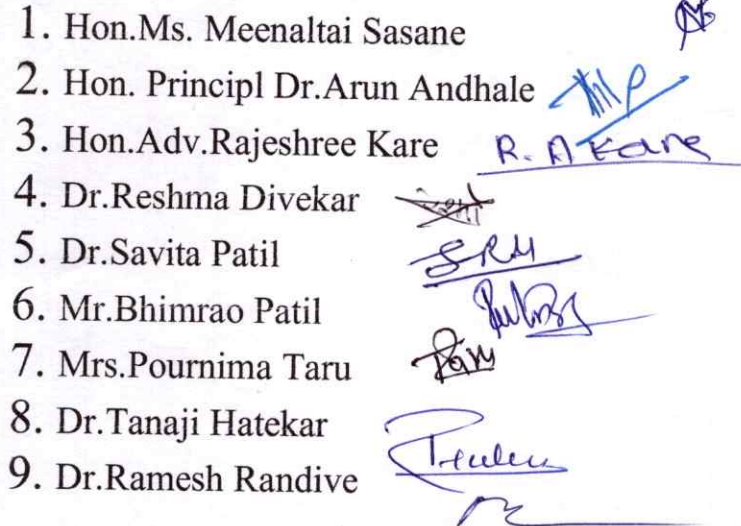 1. Hon.Ms. Meenaltai Sasane
2. Hon. Principl Dr.Arun Andhale
3. Hon.Adv.Rajeshree Kare R. A Kare
4. Dr.Reshma Divekar
5. Dr.Savita Patil
6. Mr.Bhimrao Patil
7. Mrs.Pournima Taru
8. Dr.Tanaji Hatekar
9. Dr.Ramesh Randive